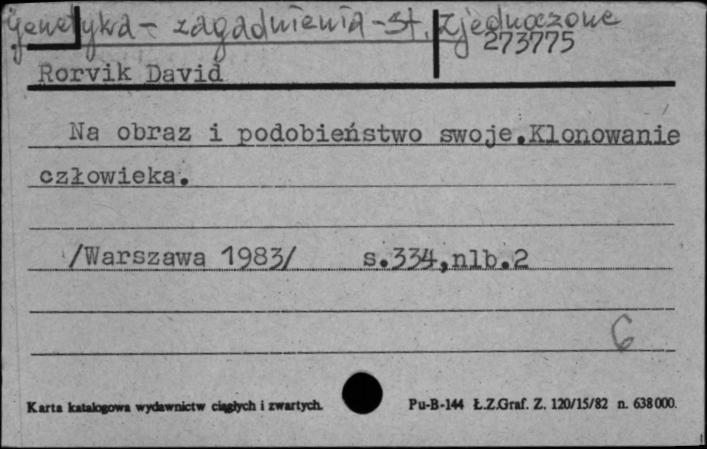 Genetyka - zagadnienia - St. Zjednoczone
273775
Rorvik David
Na obraz i podobieństwo swoje.Klonowanie
człowieka.
/Warszawa 1983/ s.334,nlb.2
6
Karta katalogowa wydawnictw ciągłych i zwartych. Pu-B-144 Ł.Z.Graf. Z. 120/15/82 n. 638000.